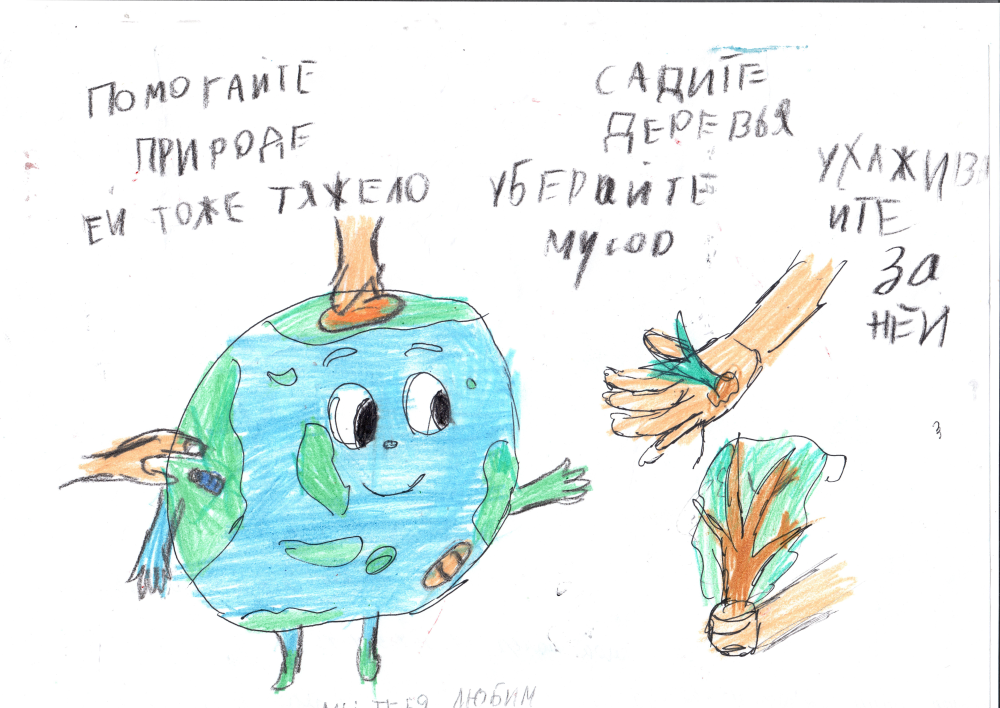 ПОМОГАЙТЕ
ПРИРОДЕ
ЕЙ ТОЖЕ ТЯЖЕЛО
САДИТЕ
ДЕРЕВЬЯ
УБЕРАЙТЕ
МУСОР
УХАЖИВА
ЙТЕ
ЗА
НЕЙ
МЫ ТЕБЯ ЛЮБИМ